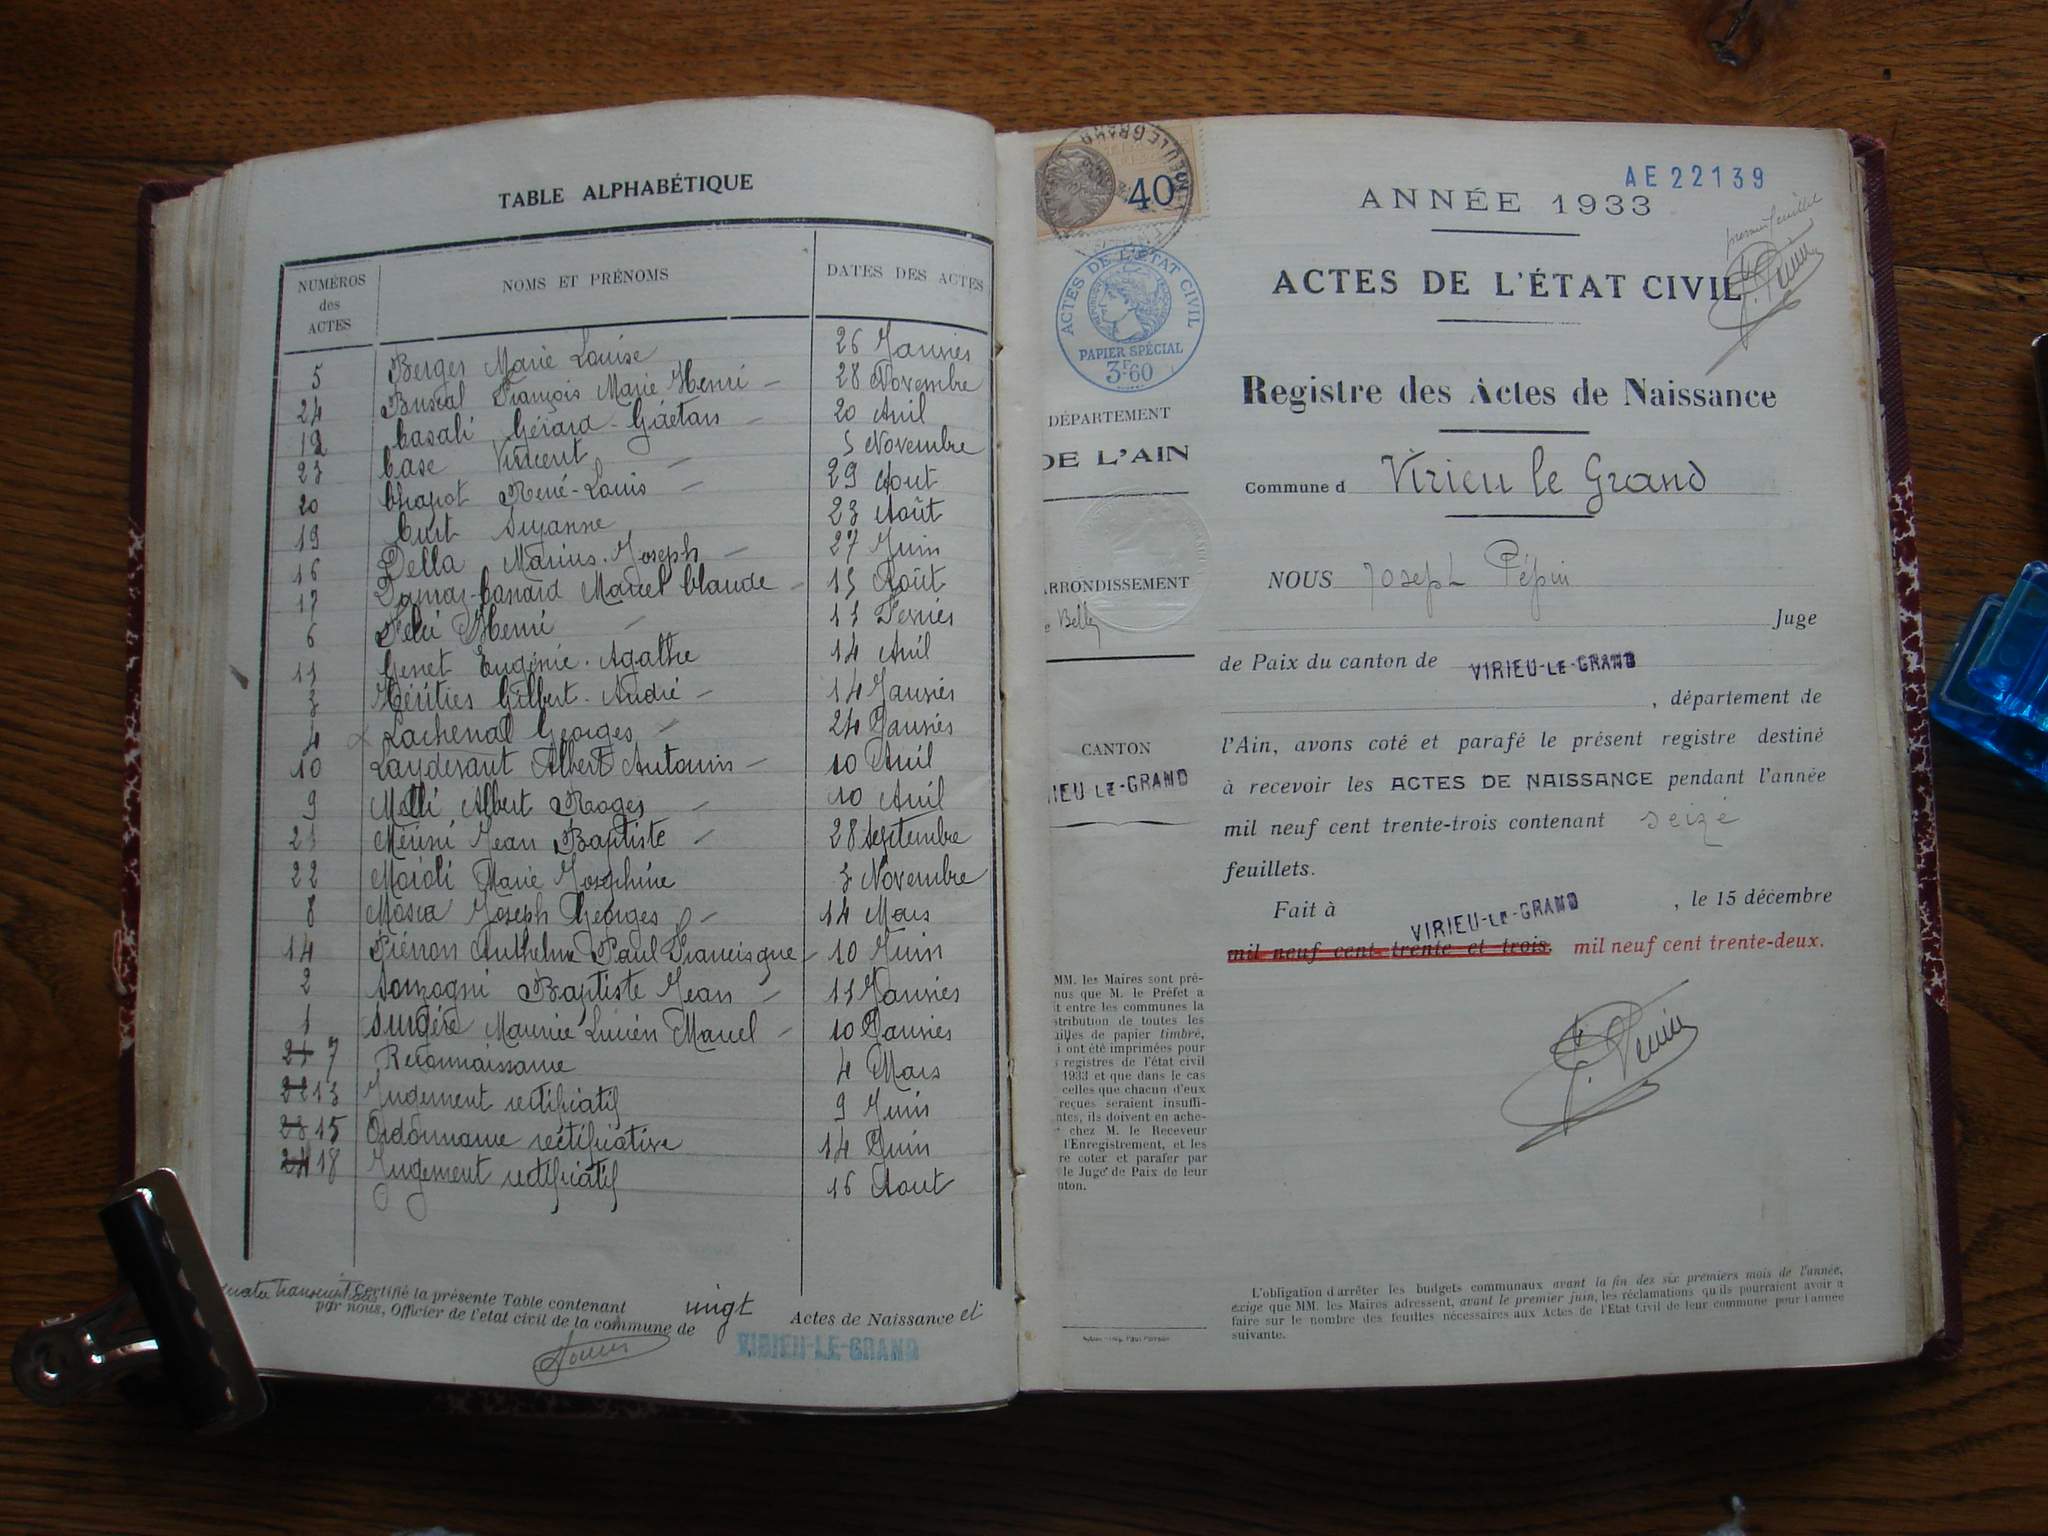 TABLE ALPHABÉTIQUE
NUMÉROS des ACTES NOMS ET PRÉNOMS DATES DES ACTES
5 Berger Marie Louise 26 Janvier
24 François Marie Henri 28 Novembre
12 Casali Gérard-Gaëtan 20 Avril
23 Case Vincent 5 Novembre
20 Chapot René-Louis 29 Aout
19 Curt Suzanne 23 Août
16 Della Marius-Joseph 27 Juin
17 Marcel Claude 15 Août
6 Henri 11 Fevrier
11 Genet Eugénie-Agathe 14 Avril
3 Héritier Gilbert-André 14 Janvier
4 Lachenal Georges 24 Janvier
10 Laydevant Albert Antonin 10 Avril
9 Albert Roger 10 Avril
21 Jean Baptiste 28 Septembre
22 Maioli Marie Joséphine 3 Novembre
8 Mosca Joseph Georges 14 Mars
14 Anthelme Paul Francisque 10 Juin
2 Sonzogni Baptiste Jean 11 Janvier
1 Maurice Lucien Marcel 10 Janvier
21 7 Reconnaissance 4 Mars
22 13 Jugement rectificatif 9 Juin
23 15 Ordonnance rectificative 14 Juin
24 18 Jugement rectificatif 16 Aout
Certifié la présente Table contenant vingt Actes de Naissance et
par nous, Officier de l'état civil de la commune de VIRIEU-LE-GRAND
40
AE 22139
ANNÉE 1933
premier feuillet
ACTES DE L'ÉTAT CIVIL
ACTES DE L'ÉTAT CIVIL
PAPIER SPÉCIAL
3F60
Registre des Actes de Naissance
DÉPARTEMENT
DE L'AIN
Commune d Virieu le Grand
ARRONDISSEMENT
NOUS Joseph Pépin
Juge
de Paix du canton de VIRIEU-LE-GRAND
, département de
l'Ain, avons coté et parafé le présent registre destiné
à recevoir les ACTES DE NAISSANCE pendant l'année
mil neuf cent trente-trois contenant seize
feuillets.
CANTON
IEU LE-GRAND
Fait à VIRIEU-LE-GRAND , le 15 décembre
mil neuf cent trente et trois. mil neuf cent trente-deux.
MM. les Maires sont pré-
nus que M. le Préfet a
t entre les communes la
stribution de toutes les
uilles de papier timbré,
i ont été imprimées pour
registres de l'état civil
1933 et que dans le cas
celles que chacun d'eux
reçues seraient insuffi-
ntes, ils doivent en ache-
chez M. le Receveur
l'Enregistrement, et les
re coter et parafer par
le Juge de Paix de leur
nton.
L'obligation d'arrêter les budgets communaux avant la fin des six premiers mois de l'année,
exige que MM. les Maires adressent, avant le premier juin, les réclamations qu'ils pourraient avoir à
faire sur le nombre des feuilles nécessaires aux Actes de l'Etat Civil de leur commune pour l'année
suivante.